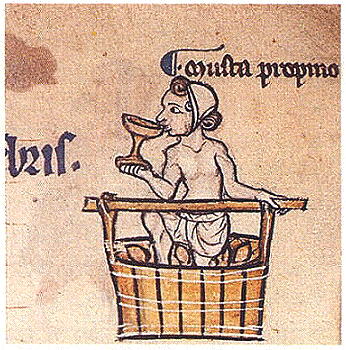 Musta propino
bris.